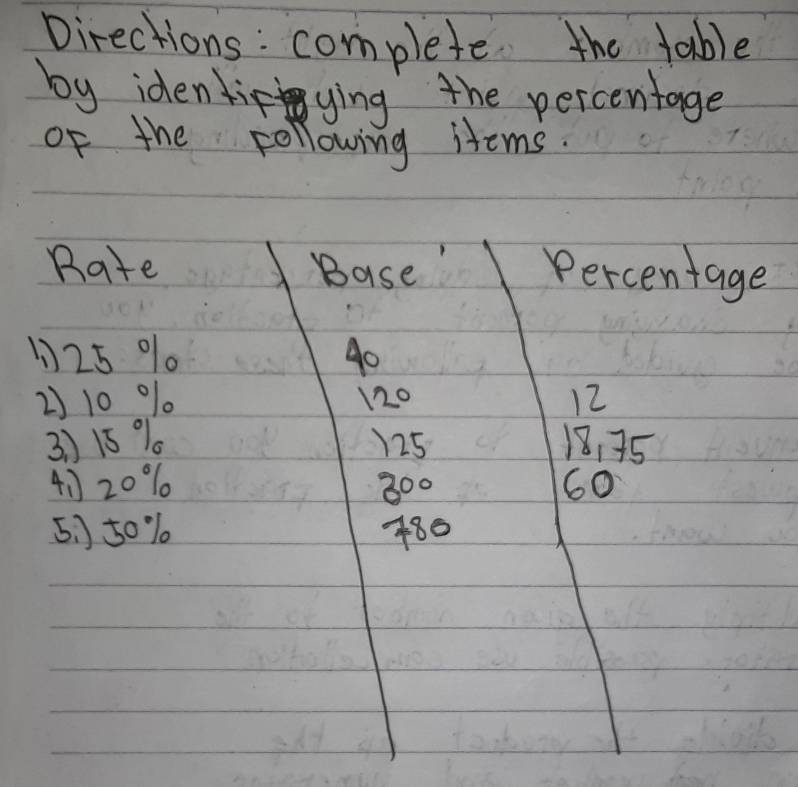 Directions: complete the table
by identifying the percentage
of the following items.
Rate Base Percentage
1.) 25 % 40
2) 10 % 120 12
3.) 15 % 125 18,75
4.) 20 % 300 60
5.) 50 % 780